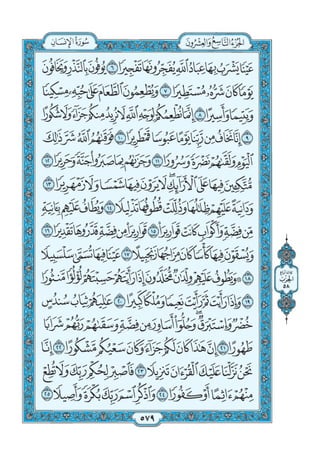 سُورَةُ الإِنسَانِ
الجُزءُ التَّاسِعُ وَالعِشْرُونَ
عَيْنًا يَشْرَبُ بِهَا عِبَادُ ٱللَّهِ يُفَجِّرُونَهَا تَفْجِيرًا ٦ يُوفُونَ بِٱلنَّذْرِ وَيَخَافُونَ
يَوْمًا كَانَ شَرُّهُۥ مُسْتَطِيرًا ٧ وَيُطْعِمُونَ ٱلطَّعَامَ عَلَىٰ حُبِّهِۦ مِسْكِينًا
وَيَتِيمًا وَأَسِيرًا ٨ إِنَّمَا نُطْعِمُكُمْ لِوَجْهِ ٱللَّهِ لَا نُرِيدُ مِنكُمْ جَزَآءً وَلَا شُكُورًا
٩ إِنَّا نَخَافُ مِن رَّبِّنَا يَوْمًا عَبُوسًا قَمْطَرِيرًا ١٠ فَوَقَىٰهُمُ ٱللَّهُ شَرَّ ذَٰلِكَ
ٱلْيَوْمِ وَلَقَّىٰهُمْ نَضْرَةً وَسُرُورًا ١١ وَجَزَىٰهُم بِمَا صَبَرُوا۟ جَنَّةً وَحَرِيرًا ١٢
مُّتَّكِـِٔينَ فِيهَا عَلَى ٱلْأَرَآئِكِ لَا يَرَوْنَ فِيهَا شَمْسًا وَلَا زَمْهَرِيرًا ١٣
وَدَانِيَةً عَلَيْهِمْ ظِلَٰلُهَا وَذُلِّلَتْ قُطُوفُهَا تَذْلِيلًا ١٤ وَيُطَافُ عَلَيْهِم بِـَٔانِيَةٍ
مِّن فِضَّةٍ وَأَكْوَابٍ كَانَتْ قَوَارِيرَا۠ ١٥ قَوَارِيرَا۟ مِن فِضَّةٍ قَدَّرُوهَا تَقْدِيرًا ١٦
وَيُسْقَوْنَ فِيهَا كَأْسًا كَانَ مِزَاجُهَا زَنجَبِيلًا ١٧ عَيْنًا فِيهَا تُسَمَّىٰ سَلْسَبِيلًا
١٨ ۞ وَيَطُوفُ عَلَيْهِمْ وِلْدَٰنٌ مُّخَلَّدُونَ إِذَا رَأَيْتَهُمْ حَسِبْتَهُمْ لُؤْلُؤًا مَّنثُورًا
١٩ وَإِذَا رَأَيْتَ ثَمَّ رَأَيْتَ نَعِيمًا وَمُلْكًا كَبِيرًا ٢٠ عَٰلِيَهُمْ ثِيَابُ سُندُسٍ
خُضْرٌ وَإِسْتَبْرَقٌ وَحُلُّوٓا۟ أَسَاوِرَ مِن فِضَّةٍ وَسَقَىٰهُمْ رَبُّهُمْ شَرَابًا
طَهُورًا ٢١ إِنَّ هَٰذَا كَانَ لَكُمْ جَزَآءً وَكَانَ سَعْيُكُم مَّشْكُورًا ٢٢ إِنَّا
نَحْنُ نَزَّلْنَا عَلَيْكَ ٱلْقُرْءَانَ تَنزِيلًا ٢٣ فَٱصْبِرْ لِحُكْمِ رَبِّكَ وَلَا تُطِعْ
مِنْهُمْ ءَاثِمًا أَوْ كَفُورًا ٢٤ وَٱذْكُرِ ٱسْمَ رَبِّكَ بُكْرَةً وَأَصِيلًا ٢٥
الحزب
٥٨
٥٧٩